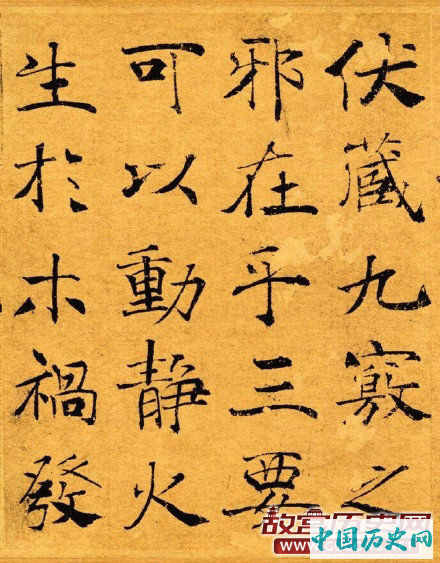 伏藏九竅之
邪在乎三要
可以動静火
生於木禍發
故宫历史网
中国历史网